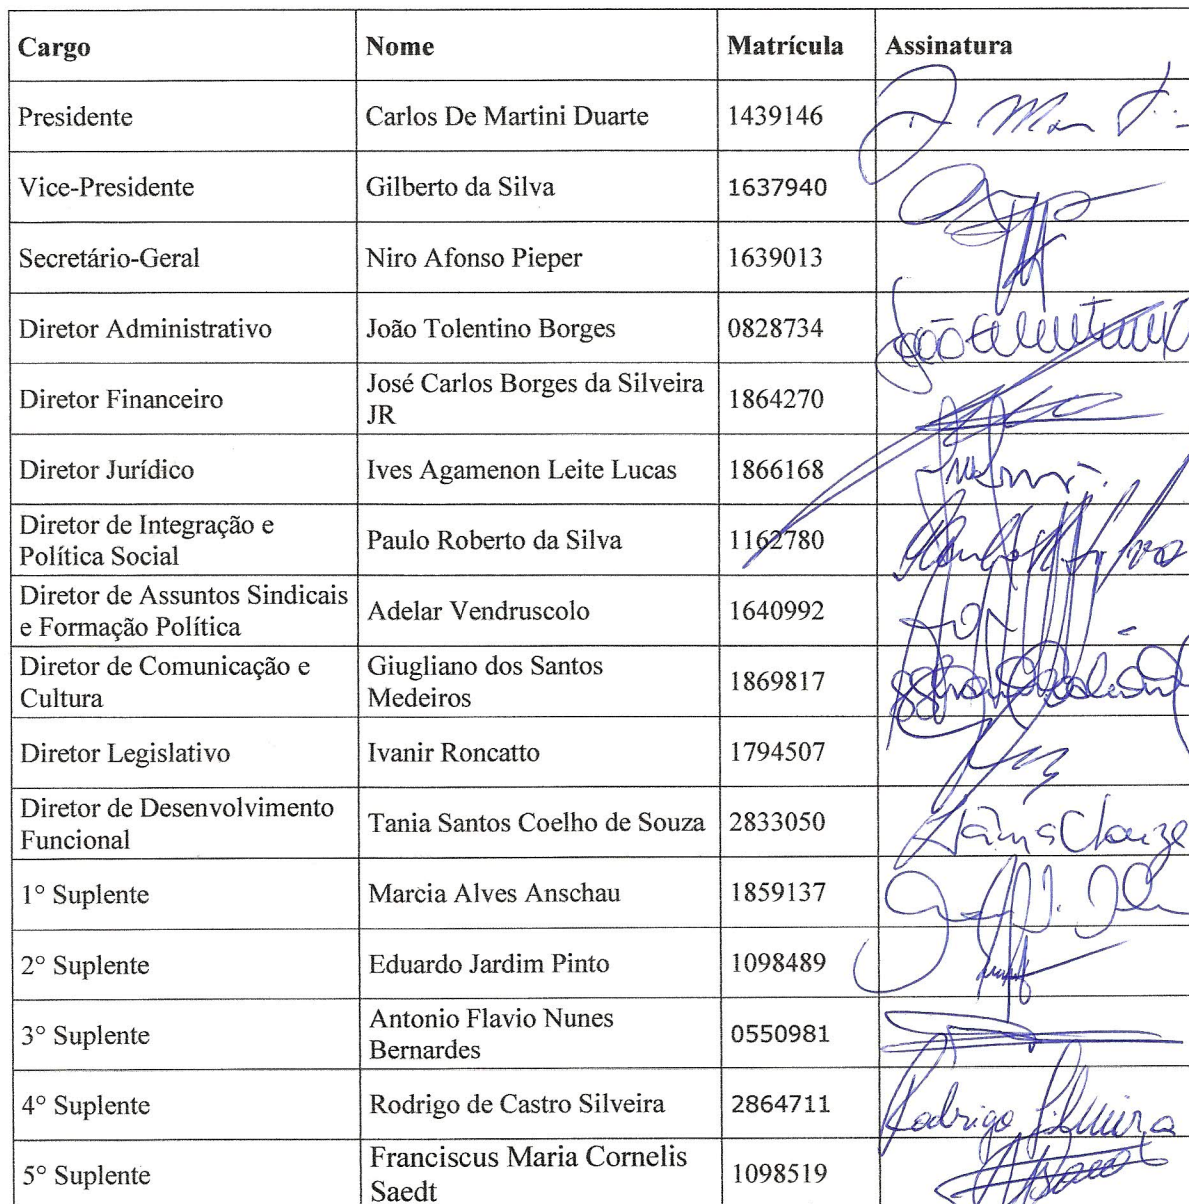 Cargo Nome Matrícula Assinatura
Presidente Carlos De Martini Duarte 1439146
Vice-Presidente Gilberto da Silva 1637940
Secretário-Geral Niro Afonso Pieper 1639013
Diretor Administrativo João Tolentino Borges 0828734
Diretor Financeiro José Carlos Borges da Silveira
JR 1864270
Diretor Jurídico Ives Agamenon Leite Lucas 1866168
Diretor de Integração e
Política Social Paulo Roberto da Silva 1162780
Diretor de Assuntos Sindicais
e Formação Política Adelar Vendruscolo 1640992
Diretor de Comunicação e
Cultura Giugliano dos Santos
Medeiros 1869817
Diretor Legislativo Ivanir Roncatto 1794507
Diretor de Desenvolvimento
Funcional Tania Santos Coelho de Souza 2833050
1° Suplente Marcia Alves Anschau 1859137
2° Suplente Eduardo Jardim Pinto 1098489
3° Suplente Antonio Flavio Nunes
Bernardes 0550981
4° Suplente Rodrigo de Castro Silveira 2864711 Rodrigo Silveira
5° Suplente Franciscus Maria Cornelis
Saedt 1098519